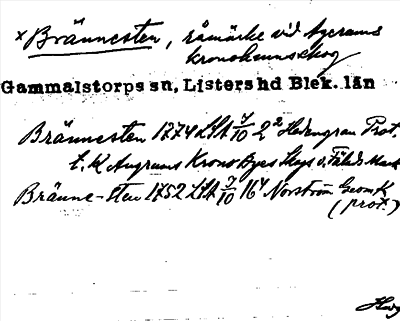 × Brännesten, råmärke vid Agerums
kronohemmskog
Gammalstorps sn, Listers hd Blek. län
Brännesten 1774 LSA 7/10 2² Hedengran Prot.
t. K Angrums Krono Byes Skogs o. Fälads Mark
Bränne-sten 1752 LSA 7/10 16⁴ Norström Geom K
(prot.)